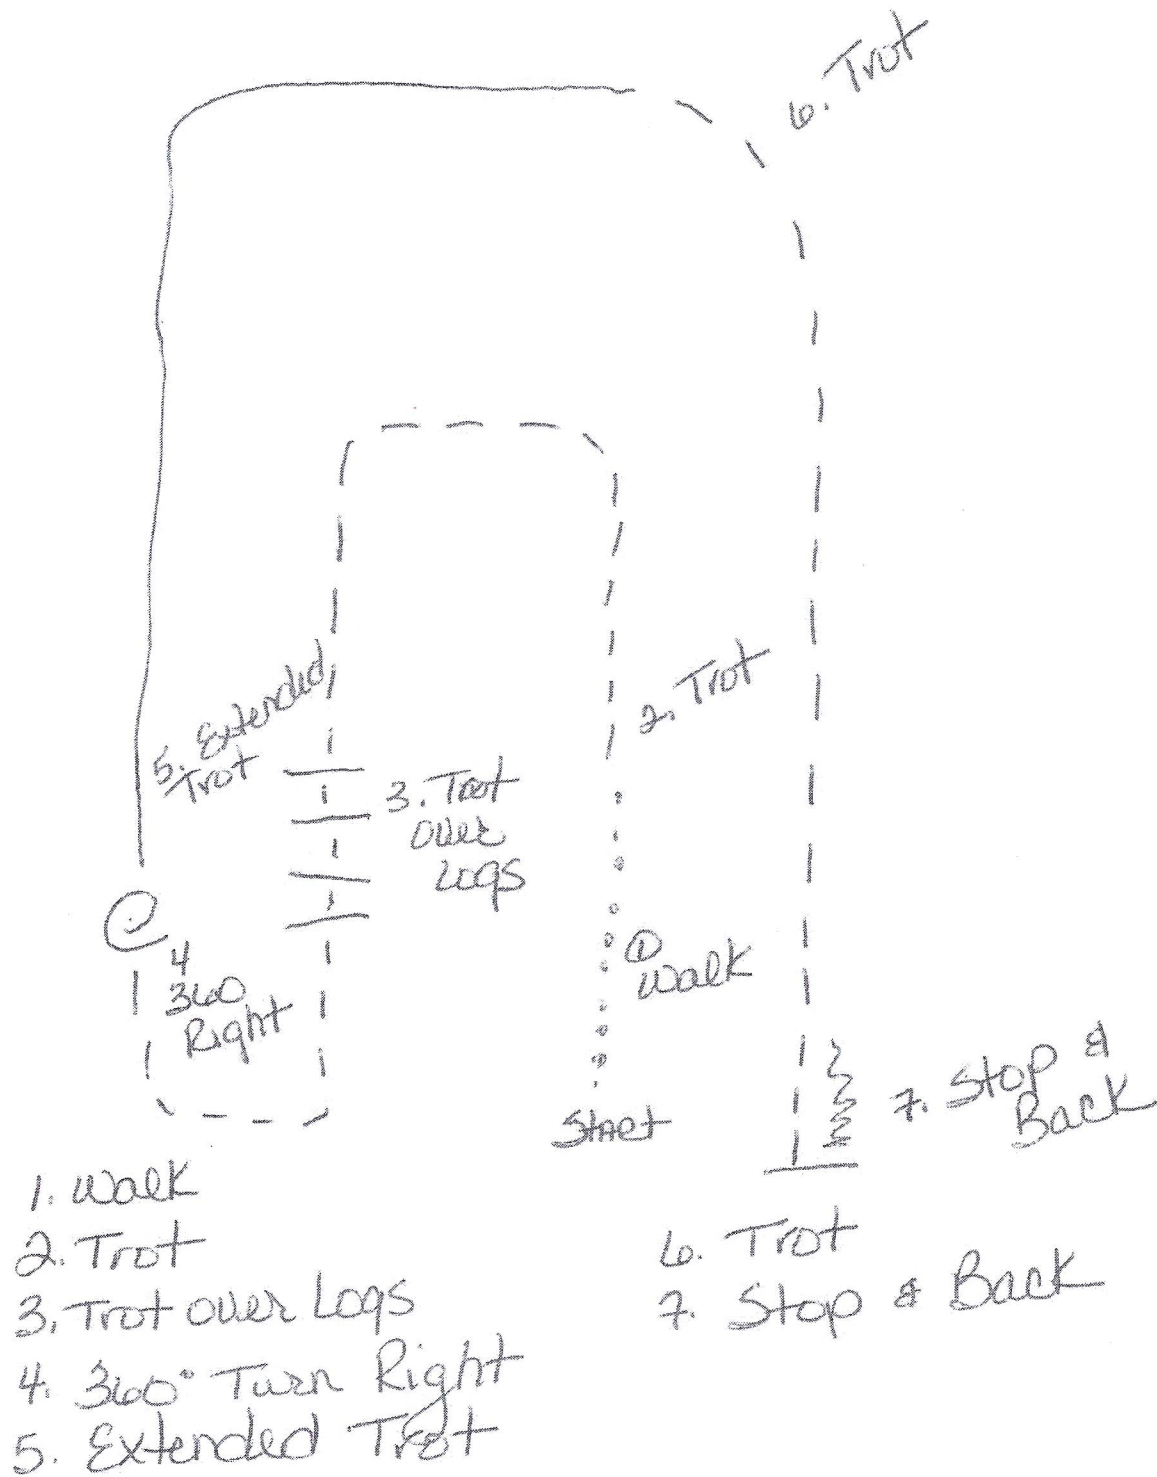 6. Trot
5. Extended
Trot
2. Trot
3. Trot
over
Logs
① Walk
4
360
Right
Start
7. Stop &
Back
1. Walk
2. Trot
3. Trot over Logs
4. 360° Turn Right
5. Extended Trot
6. Trot
7. Stop & Back